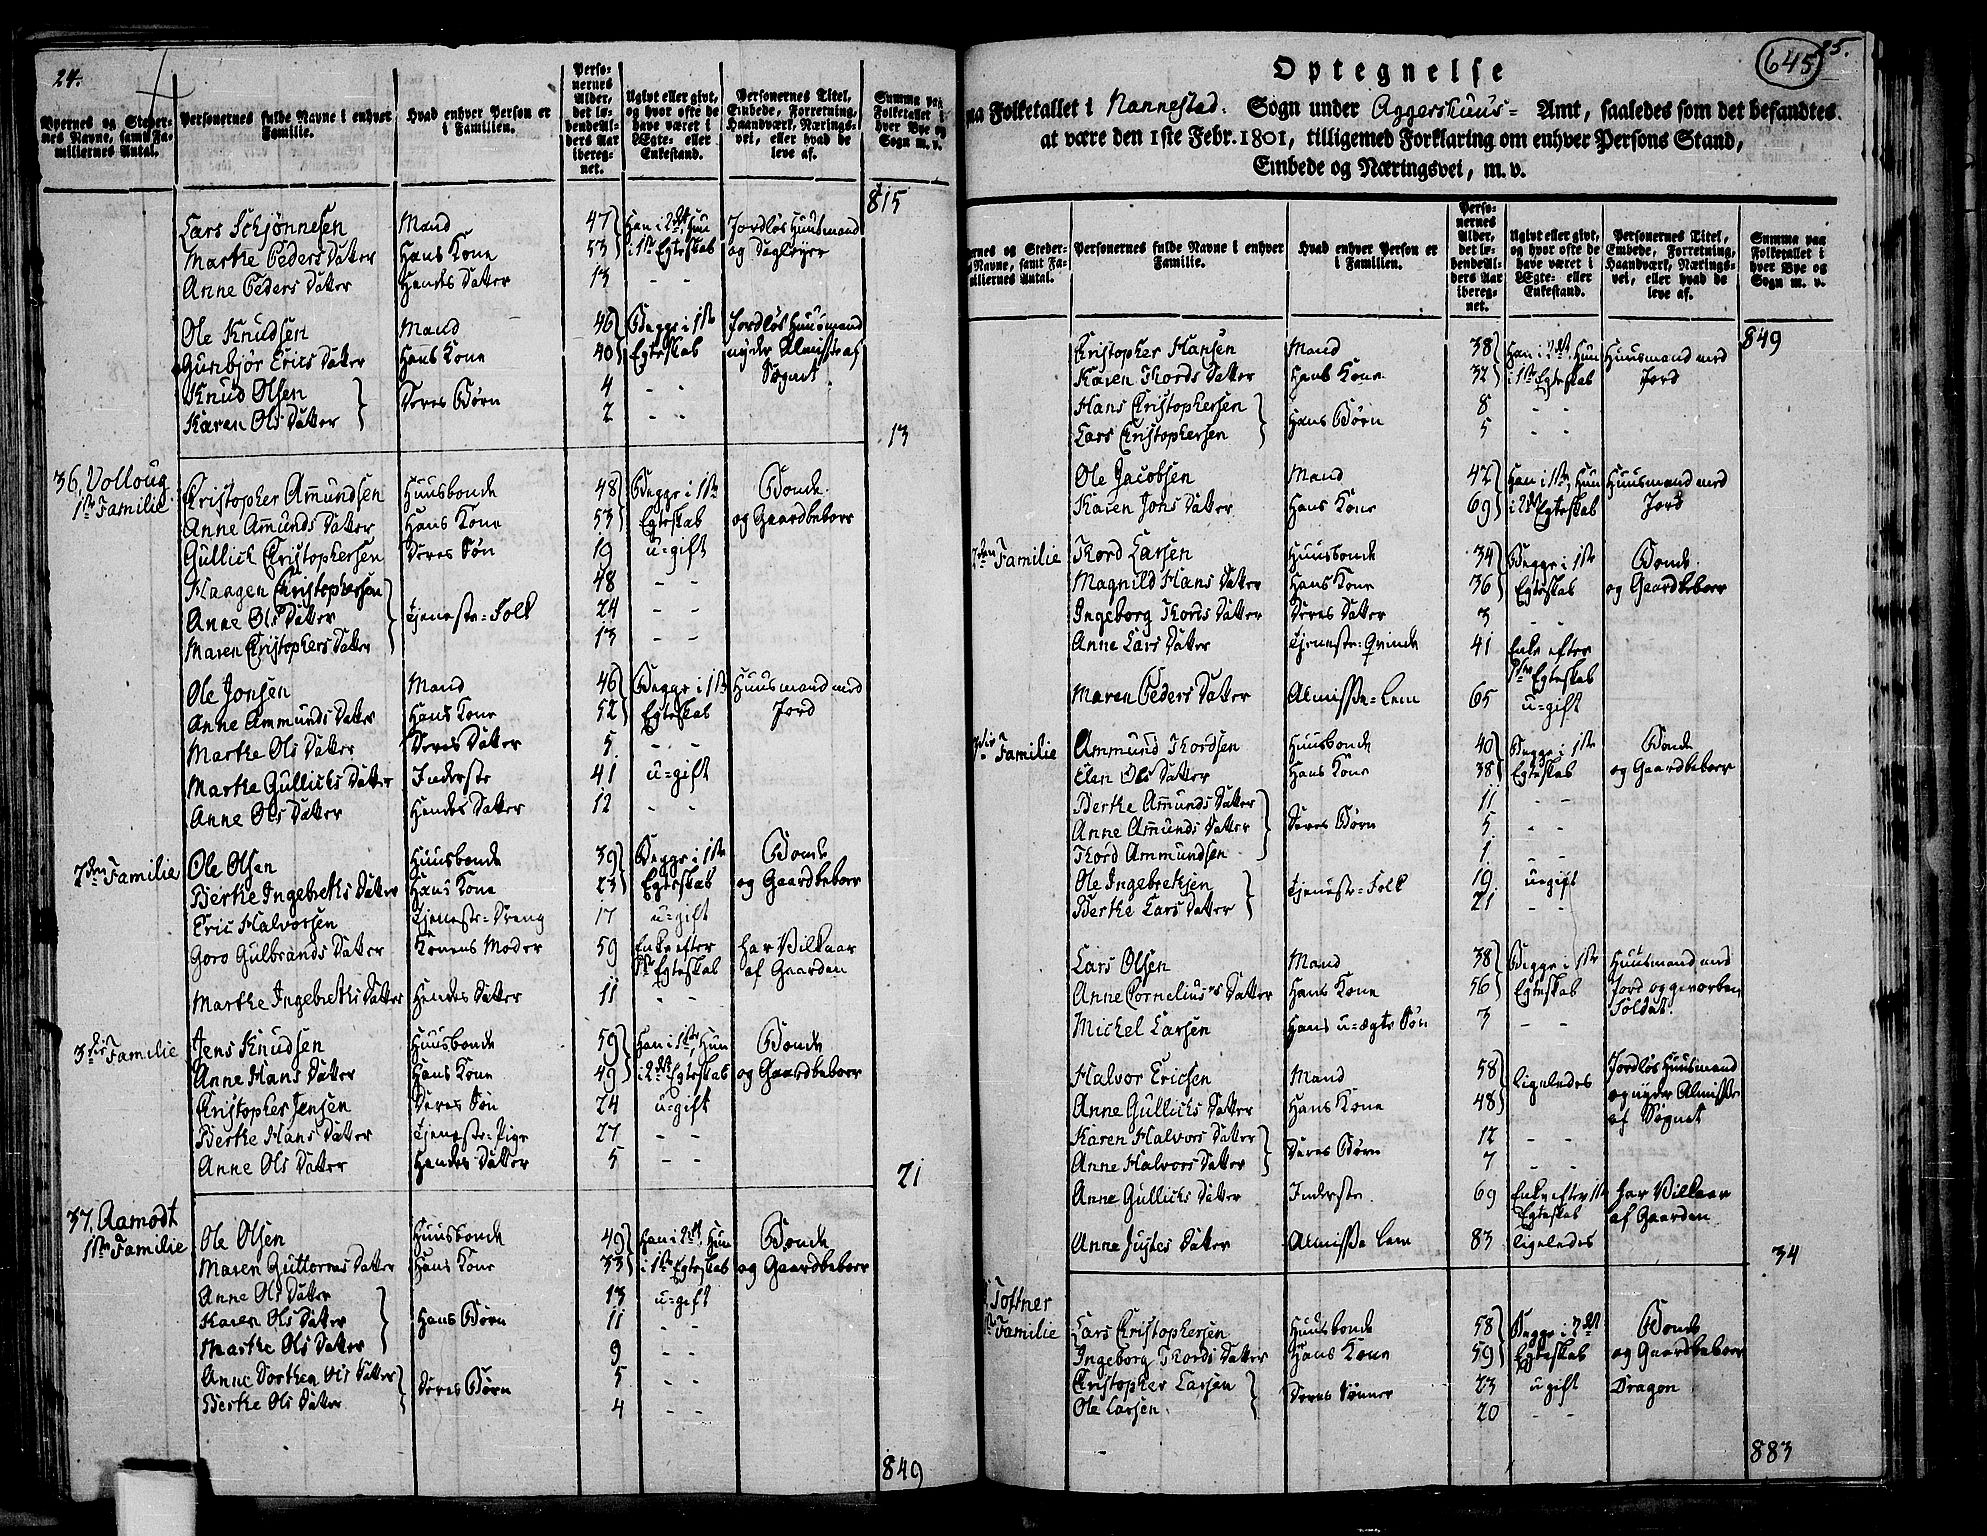 24.
Byernes og Steder-
nes Navne, samt Fa-
miliernes Antal.
Personernes fulde Navne i enhver
Familie.
Hvad enhver Person er
i Familien.
Perso-
nernes
Alder,
det lø-
bende Al-
ders Aar
ibereg-
net.
Ugivt eller givt,
og hvor ofte de
have været i
Ægte- eller
Enkestand.
Personernes Titel,
Embede, Forretning,
Haandværk, Nærings-
vei, eller hvad de
leve af.
Summa paa
Folketallet i
hver Bye og
Sogn m. v.
815
Lars Schjønnesen Mand 47 Han i 2det, Hun Jordløs Huusmand
Marthe Peders Datter Hans Kone 53 i 1ste Egteskab og Dagleyer
Anne Peders Datter Hendes Datter 13 - -
Ole Knudsen Mand 46 Begge i 1ste Jordløs Huusmand
Gunbjør Erics Datter Hans Kone 40 Egteskab nyder Almisse af
Knud Olsen 4 - - Sognet
Deres Børn
Karen Ols Datter 2 - -
13
36, Volloug
1ste Familie
Christopher Amundsen Huusbonde 48 Begge i 1ste Bonde
Anne Amunds Datter Hans Kone 53 Egteskab og Gaardbeboer
Gullich Christophersen Deres Søn 19 u=gift
Haagen Christophersen 48 - -
Anne Ols Datter Tjeneste=Folk 24 - -
Maren Christophers Datter 13 - -
Ole Jonsen Mand 46 Begge i 1ste Huusmand med
Anne Ammunds Datter Hans Kone 52 Egteskab Jord
Marthe Ols Datter Deres Datter 5 - -
Marthe Gullichs Datter Inderste 41 u=gift
Anne Ols Datter Hendes Datter 12 - -
2den Familie Ole Olsen Huusbonde 39 Begge i 1ste Bonde
Berthe Ingebreths Datter Hans Kone 23 Egteskab og Gaardbeboer
Eric Halvorsen Tjeneste=Dreng 17 u=gift
Goro Gulbrands Datter Konens Moder 59 Enke efter har Vilkaar
1ste Egteskab af Gaarden
Marthe Ingebreths Datter Hendes Datter 11 - -
3die Familie Jens Knudsen Huusbonde 59 Han i 1ste, Hun Bonde
Anne Hans Datter Hans Kone 49 i 2det Egteskab og Gaardbeboer
Christopher Jensen Deres Søn 24 u=gift
Berthe Hans Datter Tjeneste=Pige 27 - -
Anne Ols Datter Hendes Datter 5 - -
21
37, Aamodt
1ste Familie
Ole Olsen Huusbonde 49 Han i 2det, Hun Bonde
Maren Guttorms Datter Hans Kone 33 i 1ste Egteskab og Gaardbeboer
Anne Ols Datter 13 u=gift
Karen Ols Datter Hans Børn 11 - -
Marthe Ols Datter 9 - -
Anne Dorthea Ols Datter 5 - -
Deres Børn
Berthe Ols Datter 4 - -
849
645
25.
Optegnelse
paa Folketallet i Nannestad Sogn under Aggershuus- Amt, saaledes som det befandtes
at være den 1ste Febr. 1801, tilligemed Forklaring om enhver Persons Stand,
Embede og Næringsvei, m. v.
ernes og Steder-
Navne, samt Fa-
miliernes Antal.
Personernes fulde Navne i enhver
Familie.
Hvad enhver Person er
i Familien.
Perso-
nernes
Alder,
det lø-
bende Al-
ders Aar
ibereg-
net.
Ugivt eller givt,
og hvor ofte de
have været i
Ægte- eller
Enkestand.
Personernes Titel,
Embede, Forretning,
Haandværk, Nærings-
vei, eller hvad de
leve af.
Summa paa
Folketallet i
hver Bye og
Sogn m. v.
849
Christopher Hansen Mand 38 Han i 2det, Hun Huusmand med
Karen Thords Datter Hans Kone 32 i 1ste Egteskab Jord
Hans Christophersen 8 - -
Hans Børn
Lars Christophersen 5 - -
Ole Jacobsen Mand 42 Han i 1ste, Hun Huusmand med
Karen Jons Datter Hans Kone 69 i 2det Egteskab Jord
2den Familie Thord Larsen Huusbonde 34 Begge i 1ste Bonde
Magnild Hans Datter Hans Kone 36 Egteskab og Gaardbeboer
Ingeborg Thords Datter Deres Datter 3 - -
Anne Lars Datter Tjeneste=Qvinde 41 Enke efter
1ste Egteskab
Maren Peders Datter Almisse=Lem 65 u=gift
3die Familie Ammund Thordsen Huusbonde 40 Begge i 1ste Bonde
Elen Ols Datter Hans Kone 38 Egteskab og Gaardbeboer
Berthe Amunds Datter 11 - -
Anne Amunds Datter Deres Børn 5 - -
Thord Ammundsen 1 - -
Ole Ingebrethsen 19 u=gift
Tjeneste=Folk
Berthe Lars Datter 21 - -
Lars Olsen Mand 38 Begge i 1ste Huusmand med
Anne Cornelius's Datter Hans Kone 56 Egteskab Jord og gevorben
Michel Larsen Hans u=ægte Søn 3 - - Soldat.
Halvor Ericsen Mand 58 ligeledes Jordløs Huusmand
Anne Gullichs Datter Hans Kone 48 og nyder Almisse
Karen Halvors Datter 12 - - af Sognet
Deres Børn
Anne Halvors Datter 7 - -
Anne Gullichs Datter Inderste 69 Enke efter 1ste har Vilkaar
Egteskab af Gaarden
Anne Justes Datter Almisse Lem 83 ligeledes
34
Toftner
Familie Lars Christophersen Huusbonde 58 Begge i 2det Bonde
Ingeborg Thords Datter Hans Kone 59 Egteskab og Gaardbeboer
Christopher Larsen 23 u gift Dragon
Deres Sønner
Ole Larsen 20 - -
883